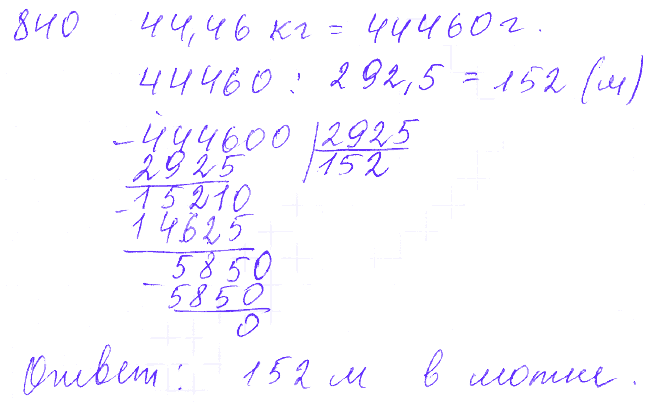 840 44,46 кг = 44460 г.
44460 : 292,5 = 152 (м)
- 444600 | 2925
2925 152
- 15210
14625
- 5850
5850
0
Ответ: 152 м в мотке.